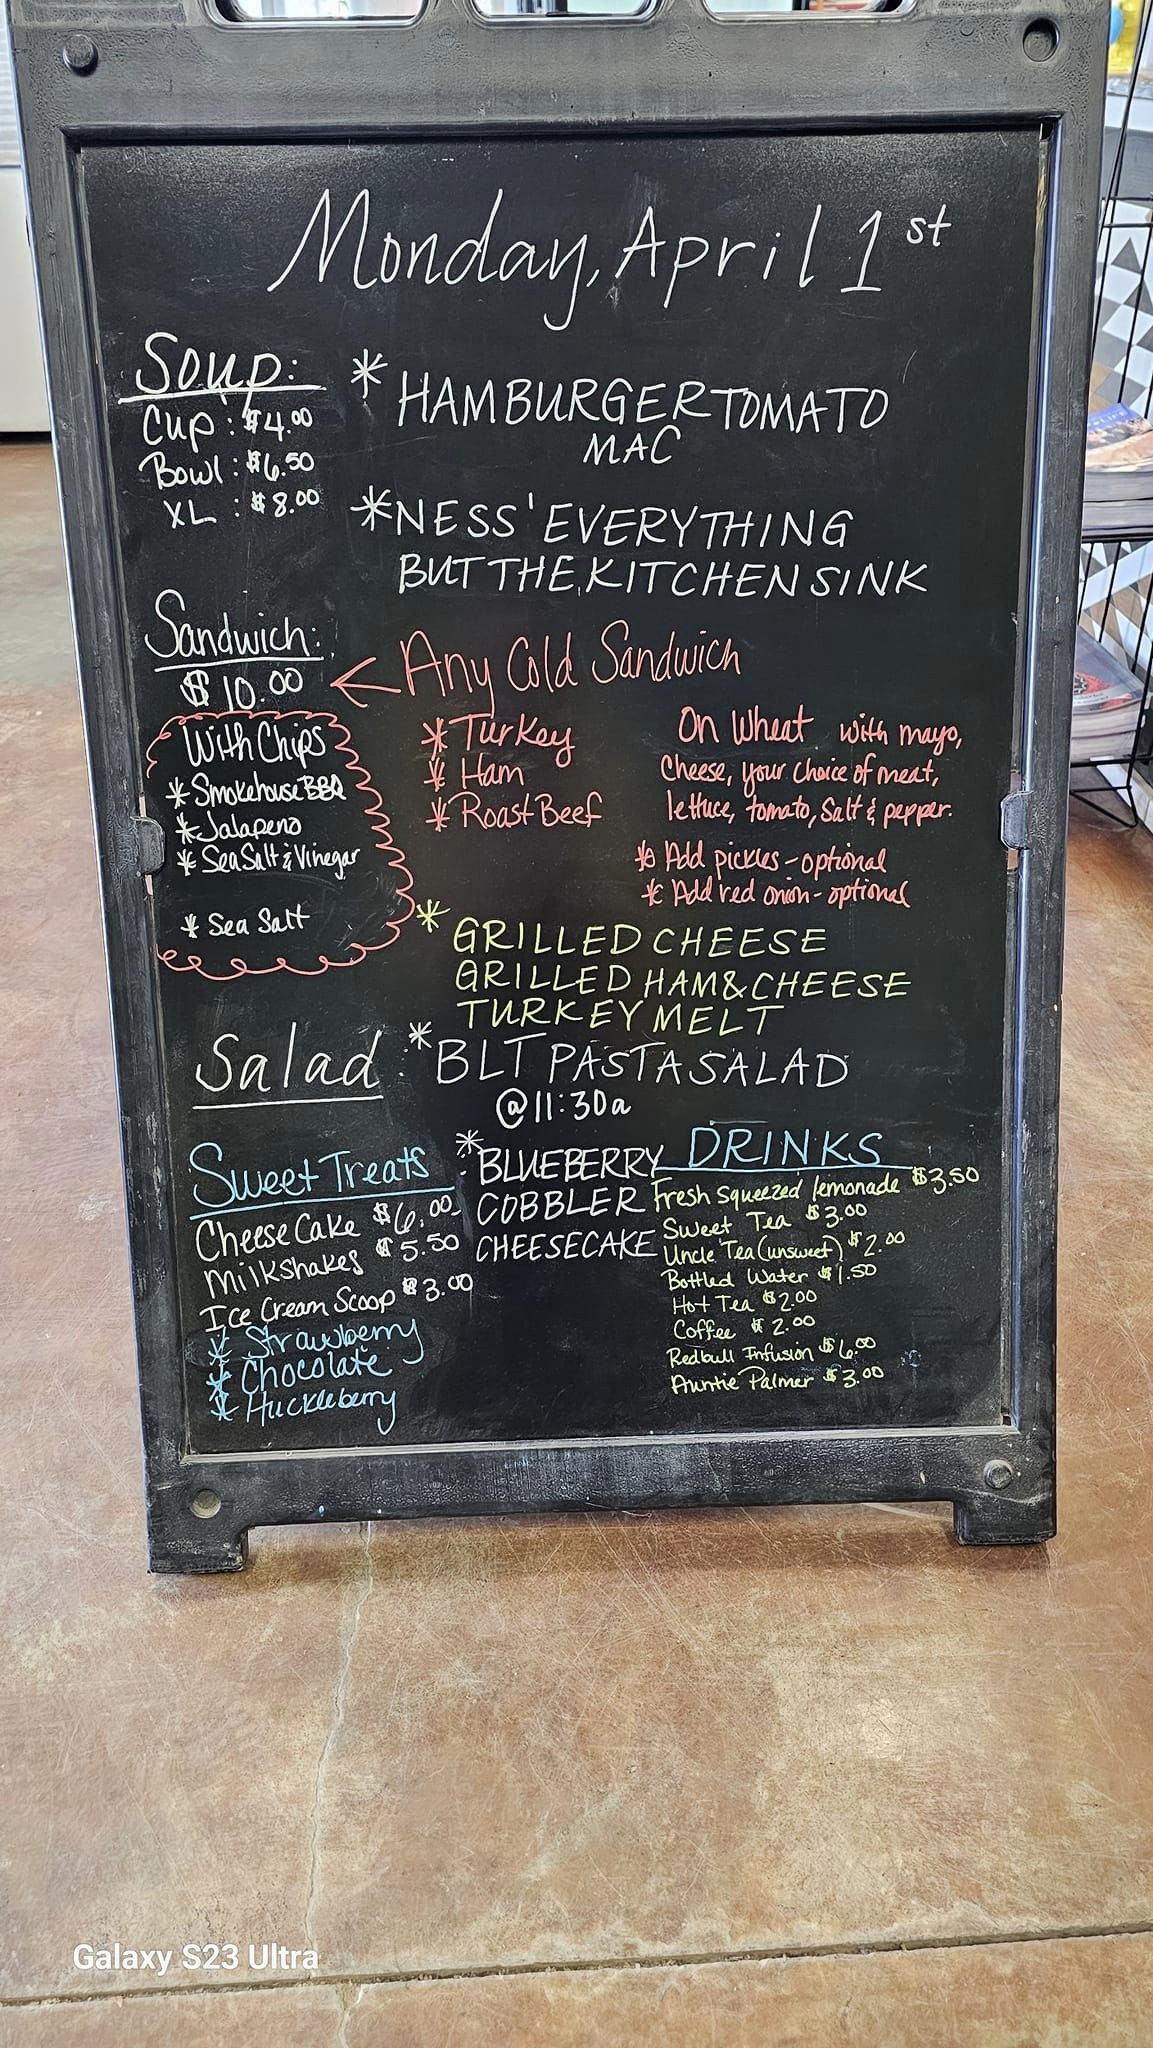 Monday, April 1st
Soup:
Cup: $4.00
Bowl: $6.50
XL: $8.00
* HAMBURGER TOMATO
MAC
* NESS' EVERYTHING
BUT THE KITCHEN SINK
Sandwich:
$10.00
← Any Cold Sandwich
With Chips
* Smokehouse BBQ
* Jalapeno
* Sea Salt & Vinegar
* Sea Salt
* Turkey
* Ham
* Roast Beef
On Wheat with mayo,
Cheese, your choice of meat,
lettuce, tomato, Salt & pepper.
* Add pickles - optional
* Add red onion - optional
* GRILLED CHEESE
GRILLED HAM & CHEESE
TURKEY MELT
Salad: * BLT PASTA SALAD
@ 11:30a
Sweet Treats:
CheeseCake $6.00-
Milkshakes $5.50
Ice Cream Scoop $3.00
* Strawberry
* Chocolate
* Huckleberry
* BLUEBERRY
COBBLER
CHEESECAKE
DRINKS
Fresh Squeezed lemonade $3.50
Sweet Tea $3.00
Uncle Tea (unsweet) $2.00
Bottled Water $1.50
Hot Tea $2.00
Coffee $2.00
Redbull Infusion $6.00
Auntie Palmer $3.00
Galaxy S23 Ultra